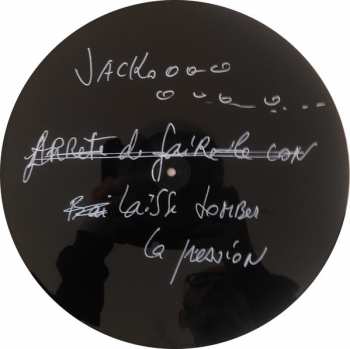 JACKoooo
ARRETE de faire le CON
Laisse tomber
la pression